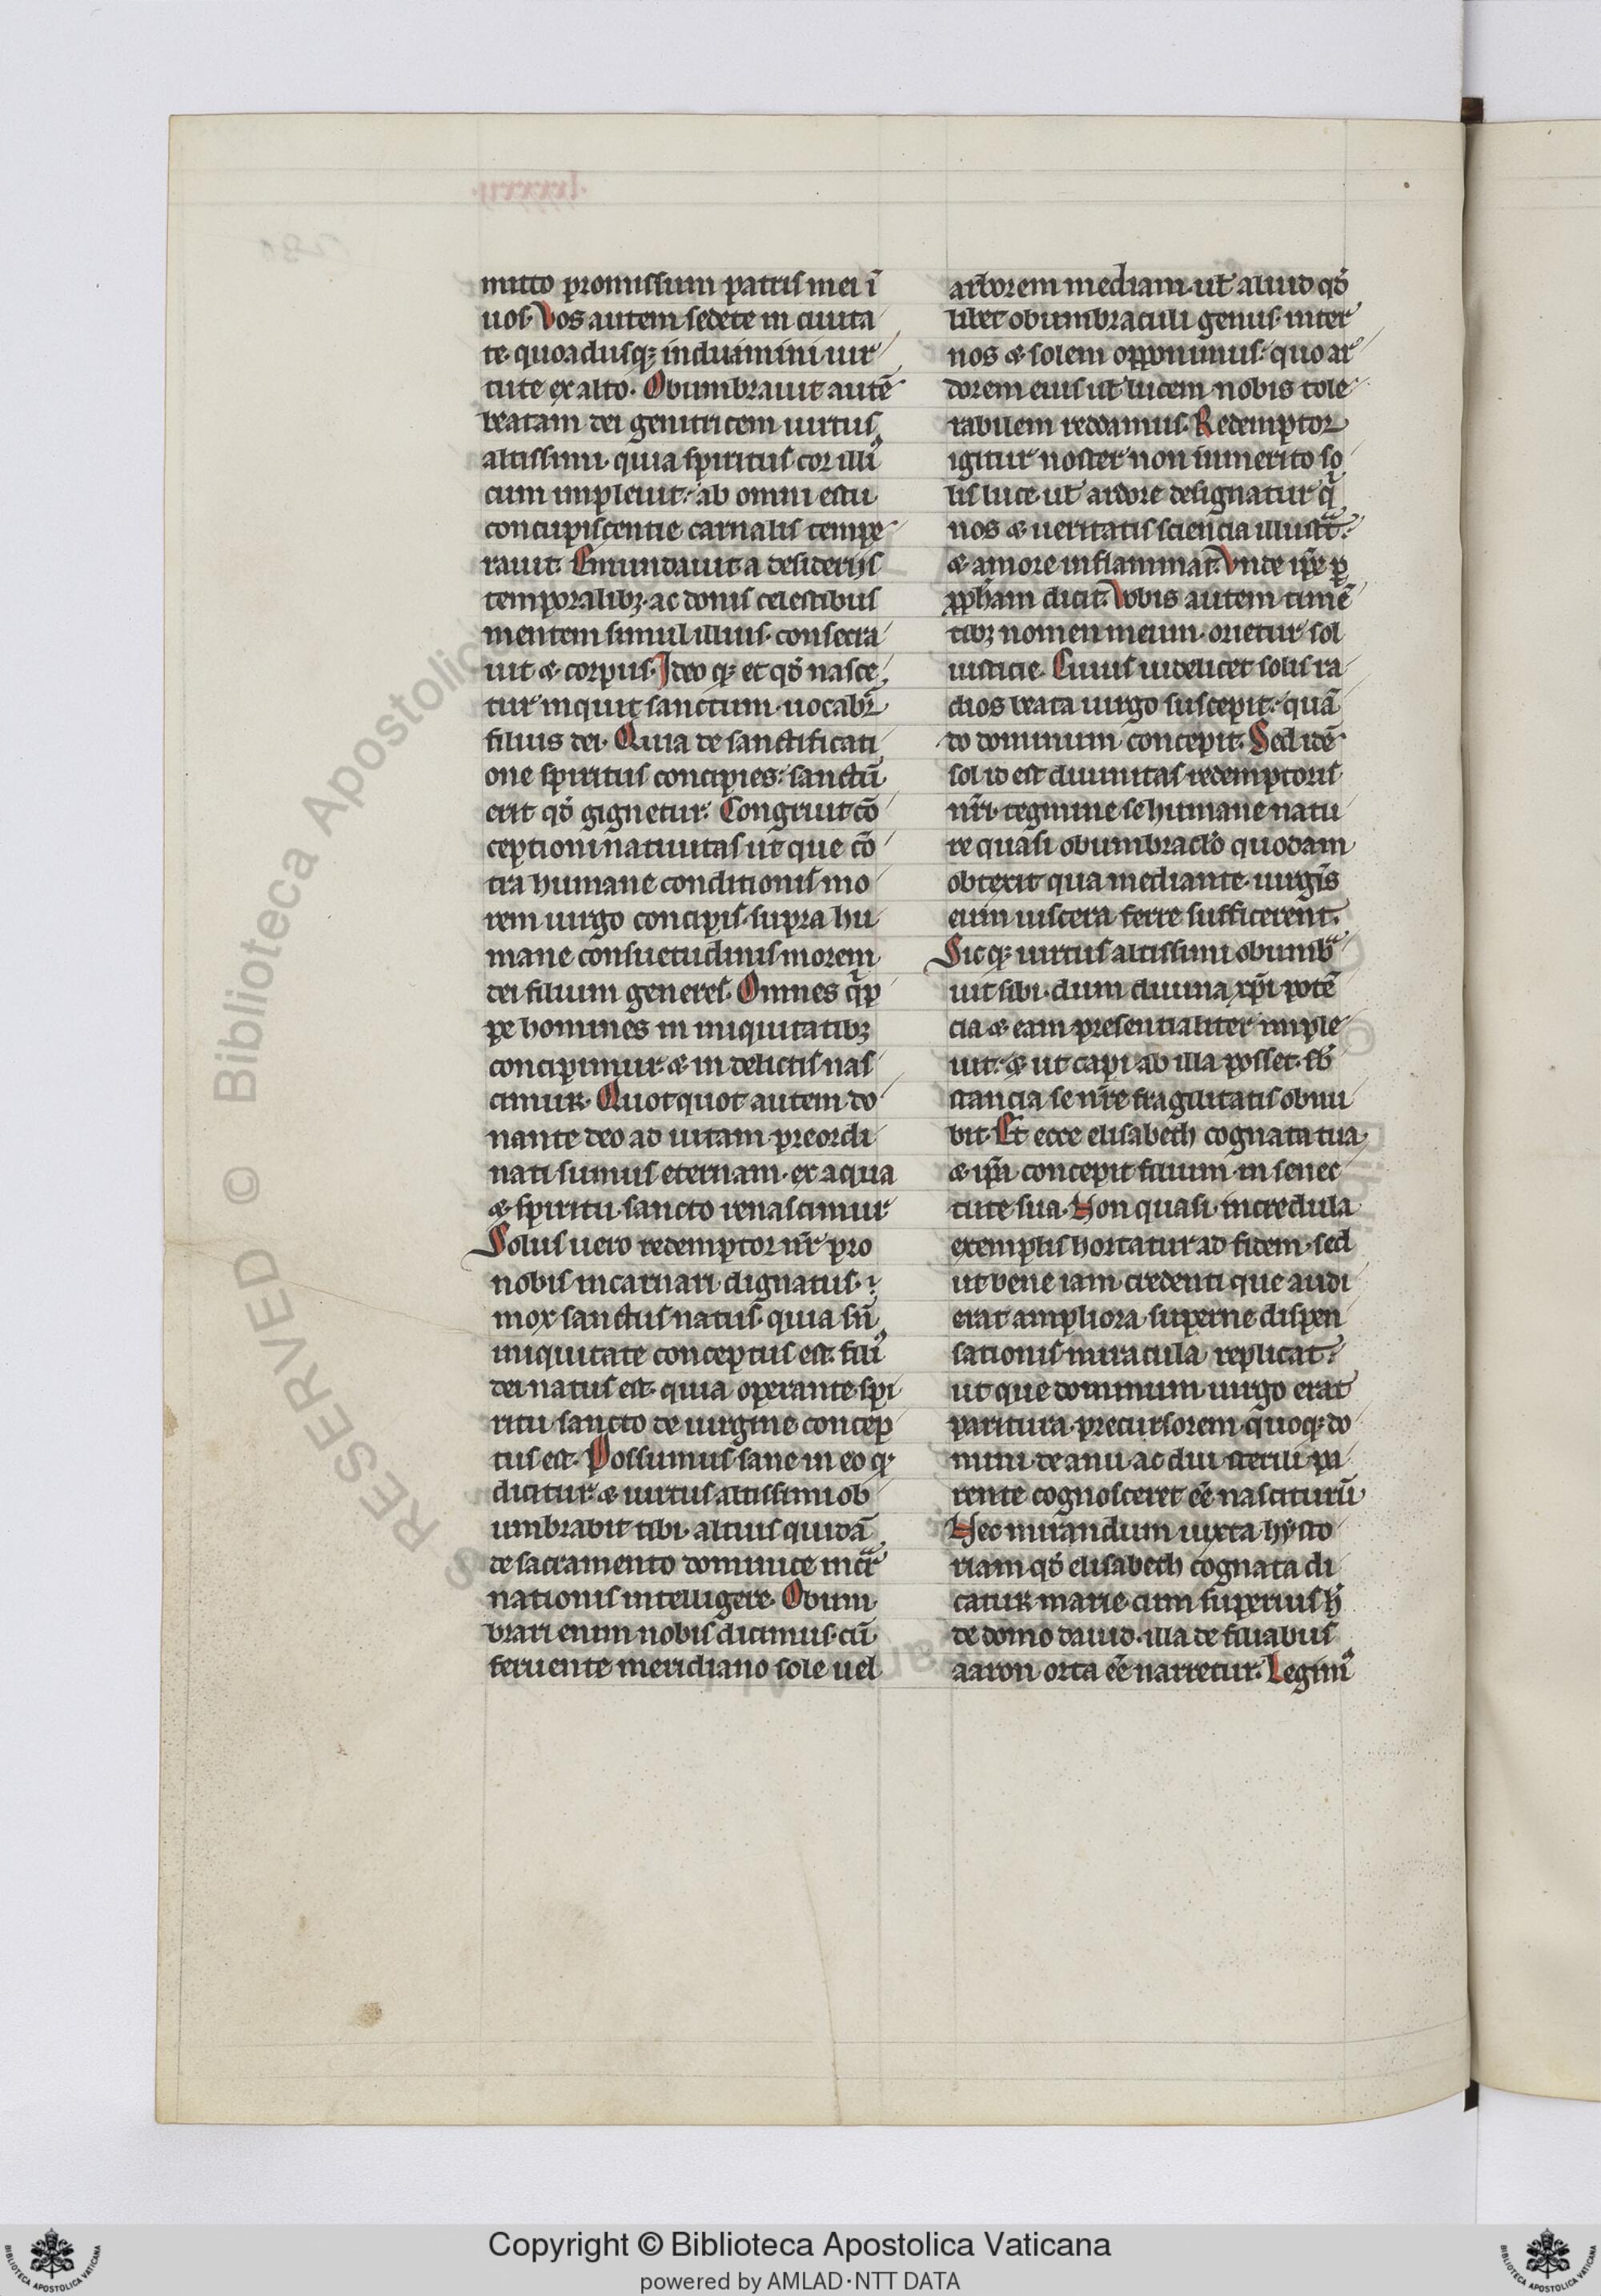 mitto promissum patris mei ĩ
uos. Vos autem sedete in ciuita
te. quoadusq; induamini uir
tute ex alto. Obumbrauit autẽ
beatam dei genitricem uirtus
altissimi. quia spiritus cor illiꝰ
cum impleuit. ab omni estu
concupiscentie carnalis tempe
rauit. Emundauit a desiderijs
temporalibꝫ. ac donis celestibus
mentem simul illius. consecra
uit ⁊ corpus. Ideo q; et qđ nasce
tur inquit sanctum. uocabr̃
filius dei. Quia de sanctificati
one spiritus concipies. sanctũ
erit qđ gignetur. Congruit cõ
ceptioni natiuitas ut que cõ
tra humane conditionis mo
rem uirgo concipis. supra hu
mane consuetudinis morem
dei filium generes. Omnes q̃p
pe homines in iniquitatibꝫ
concipimur. ⁊ in delictis nas
cimur. Quotquot autem do
nante deo ad uitam preordi
nati sumus eternam. ex aqua
⁊ spiritu sancto renascimur
Solus uero redemptor nr̃ pro
nobis incarnari dignatus.
mox sanctus natus. quia sñ
iniquitate conceptus est. filiꝰ
dei natus est. quia operante spi
ritu sancto de uirgine concep
tus est. Possumus sane in eo q
dicitur. ⁊ uirtus altissimi ob
umbrabit tibi. altius quidã
de sacramento dominice incar
nationis intelligere. Obum
brari enim nobis dicimus. cũ
feruente meridiano sole uel
arborem mediam. ul̃ aliud qđ
libet obumbraculi genus. inter
nos ⁊ solem opponimus. quo ar
dorem eius ul̃ lucem nobis tole
rabilem reddamus. Redemptor
igitur noster non inmerito so
lis luce. ul̃ ardore designatur q̃
nos ⁊ ueritatis sciencia illustᵃt.
⁊ amore inflammat. Vnde ip̃e ꝑ
ꝓpħam dicit. Vobis autem timẽ
tibꝫ nomen meum. orietur sol
iusticie. Cuius uidelicet solis ra
dios beata uirgo suscepit. quã
do dominum concepit. Sed idẽ
sol id est diuinitas redemptoris
nr̃i. tegmine se humane natu
re quasi obumbraclo quodam
obtexit qua mediante. uirgĩs
eum uiscera ferre sufficerent.
Sicq; uirtus altissimi obumbᵃ
uit sibi. dum diuina xp̃i potẽ
cia ⁊ eam presentialiter imple
uit. ⁊ ut capi ab illa posset. sb̃
stancia se nr̃e fragilitatis obnu
bit. Et ecce elisabeth cognata tua
⁊ ip̃a concepit filium in senec
tute sua. Non quasi incredula
exemplis hortatur ad fidem. sed
ut bene iam credenti que audi
erat ampliora superne dispen
sationis miracula replicat.
ut que dominum uirgo erat
paritura. precursorem quoq; do
mini de anu. ac diu sterili pa
rente cognosceret ee̅ nasciturũ
Nec mirandum iuxta hysto
riam qđ elisabeth cognata di
catur marie. cum superius h̃
de domo dauid. illa de filiabus
aaron orta ee̅ narretur. Legimꝰ
Copyright © Biblioteca Apostolica Vaticana
powered by AMLAD·NTT DATA